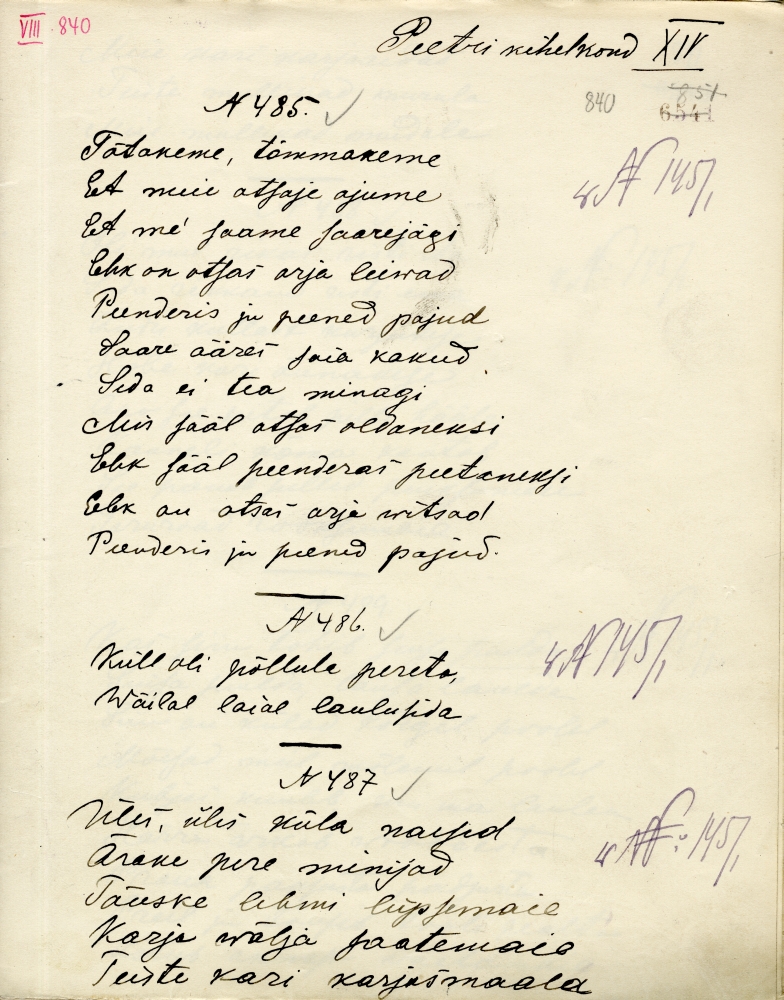 VIII 840
Peetri kihelkond XIV
N 485.
840
851
6541
Tõtakeme, tõmmakeme
N 145/1
Et meie otsaje ajume
Et me' saame saarejägi
Ehk on otsas arja leiwad
Peenderis ju peened pajud
Saare ääres saia kakud
Seda ei tea minagi
Mis sääl otsas oldaneksi
Ehk sääl peenderas peetaneksi
Ehk on otsas arja witsad
Peenderis ju peened pajud.
N 486.
Küll oli põllula pereta,
N 145/1
Wäilal laial laulusida
N 487
Üles, üles küla naesed
Ärake pere minijad
N 145/1
Tõuske lehmi lüpsemaie
Karja wälja saatemaie
Teiste kari karjasmaala